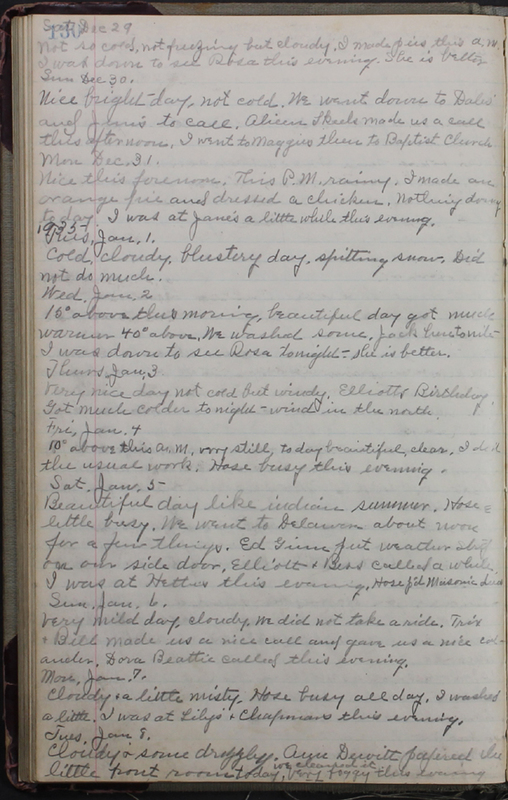 130
Sat, Dec 29
Not so cold, not freezing but cloudy. I made pies this a.m.
I was down to see Rosa this evening. She is better
Sun Dec 30.
Nice bright day, not cold. We went down to Dales
and Janis to call. Alien Skeels made us a call
this afternoon. I went to Maggies then to Baptist Church
Mon Dec. 31.
Nice this forenoon. This P.M. rainy. I made an
orange pie and dressed a chicken. Nothing doing
to day. I was at Jane's a little while this evening.
1935
Tues, Jan. 1.
Cold, cloudy, blustery day, spitting snow. Did
not do much.
Wed. Jan. 2
15° above this moring, beautiful day got much
warmer 40° above, We washed some. Jack
I was down to see Rosa tonight - she is better.
Thurs, Jan. 3
Very nice day not cold but windy. Elliotts Birthday.
Got much colder to night - wind in the north.
Fri, Jan. 4
10° above this a.m, very still, today beautiful, clear. I did
the usual work. Hose busy this evening.
Sat. Jan. 5
Beautiful day like indian summer. Hose a
little busy. We went to Delavan about noon
for a few things. Ed Ginn put weather strip
on our side door, Elliott & Bess called a while.
I was at Hetties this evening. Hose p'd Masonic dues
Sun. Jan. 6.
Very mild day, cloudy, we did not take a ride. Trix
& Bill made us a nice call and gave us a nice col-
ander. Dora Beattie called this evening.
Mon, Jan. 7.
Cloudy & a little misty. Hose busy all day. I washed
a little. I was at Lilys & Chapman this evening.
Tues, Jan 8.
Cloudy & some drizzly. Ann Dewitt papered the
little front room today, we cleaned it Very foggy this evening